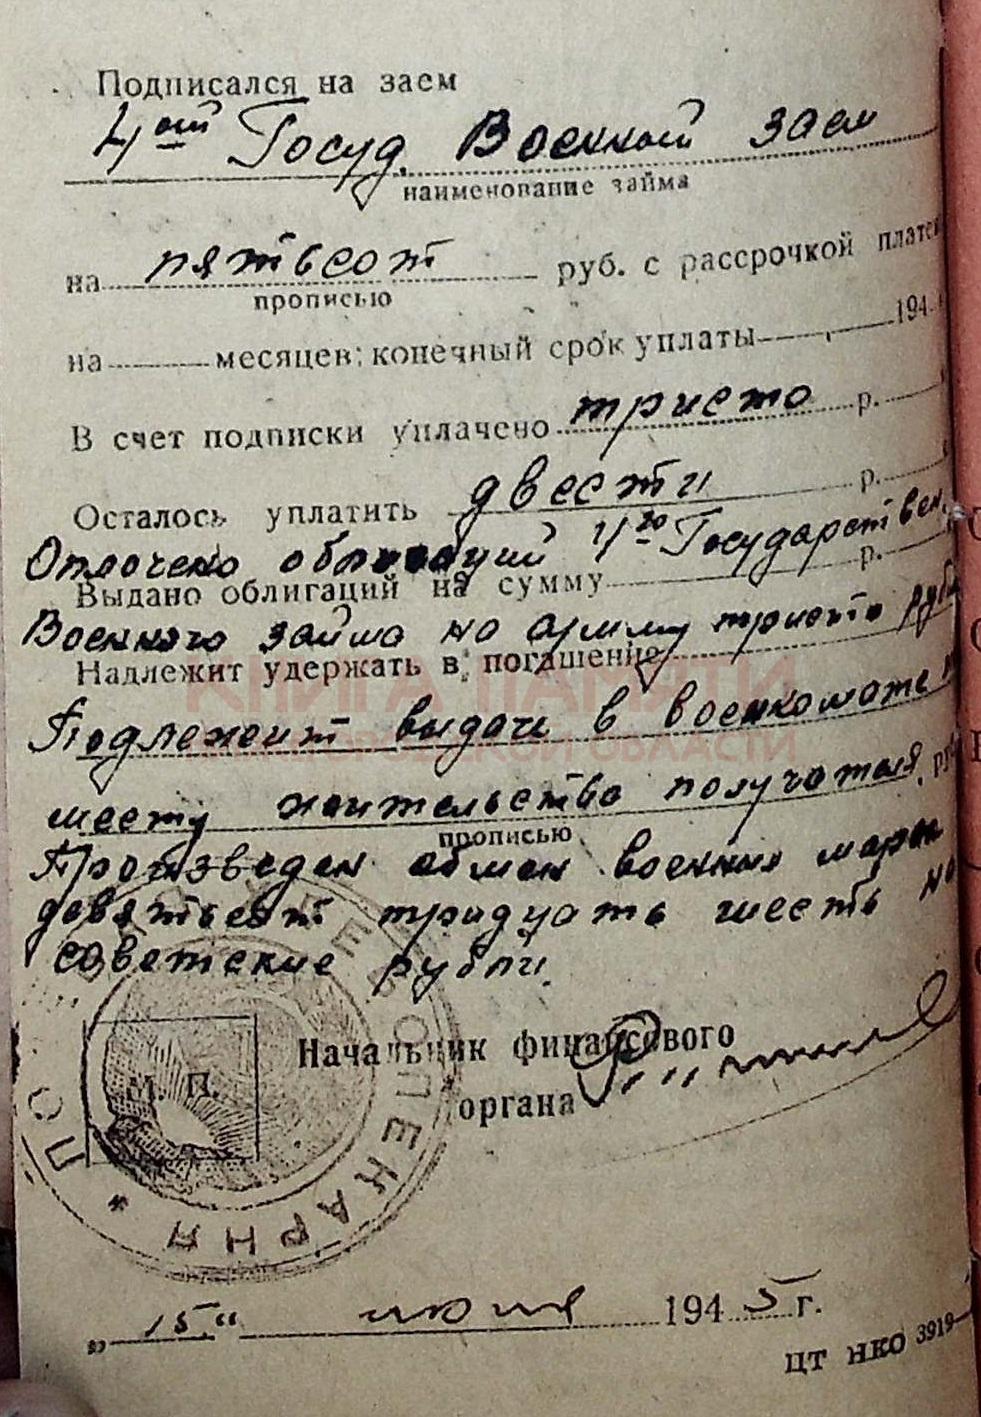 Подписался на заем
4ый Госуд. Военный заем
наименование займа
на пятьсот руб. с рассрочкой платеж
прописью
на месяцев; конечный срок уплаты 194
В счет подписки уплачено тристо р.
Осталось уплатить двести р.
Оплочено облигаций 4го Государствен.
Выдано облигаций на сумму р.
Военного займа на сумму тристо рубл
Надлежит удержать в погашение
КНИГА ПАМЯТИ
НИЖЕГОРОДСКОЙ ОБЛАСТИ
Подлежит выдачи в военкомате
месту жительства получателя. руб
прописью
Произведен обмен военных марок
девятьсот тридцать шесть на
советские рубли.
Начальник финансового
органа
М. П.
ПОЛЕВАЯ ХЛЕБОПЕКАРНЯ *
„ 15 " июля 1945 г.
ЦТ НКО 3919